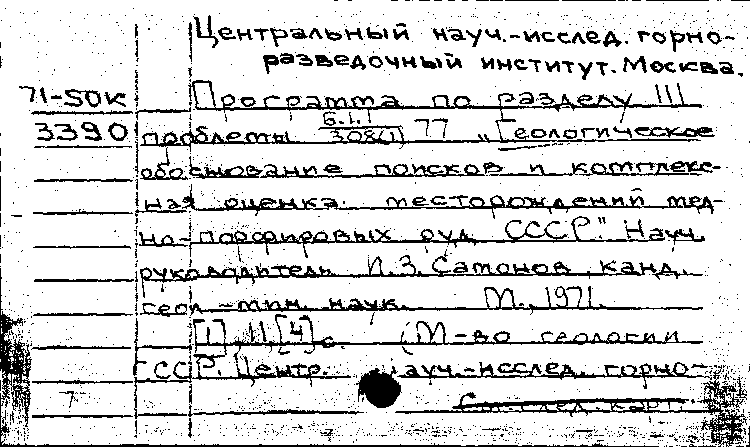 Центральный науч.-исслед. горно-
разведочный институт. Москва.
71-50К Программа по разделу III
3390 проблемы 6.1.1/308(1) 77 „Геологическое
обоснование поисков и комплекс-
ная оценка месторождений мед-
но-порфировых руд СССР." Науч.
руководитель И.З. Самонов, канд.
геол.-мин. наук. М., 1971.
[1], 11, [4] с. (М-во геологии
СССР. Центр. науч.-исслед. горно-
7 См. след. карт.